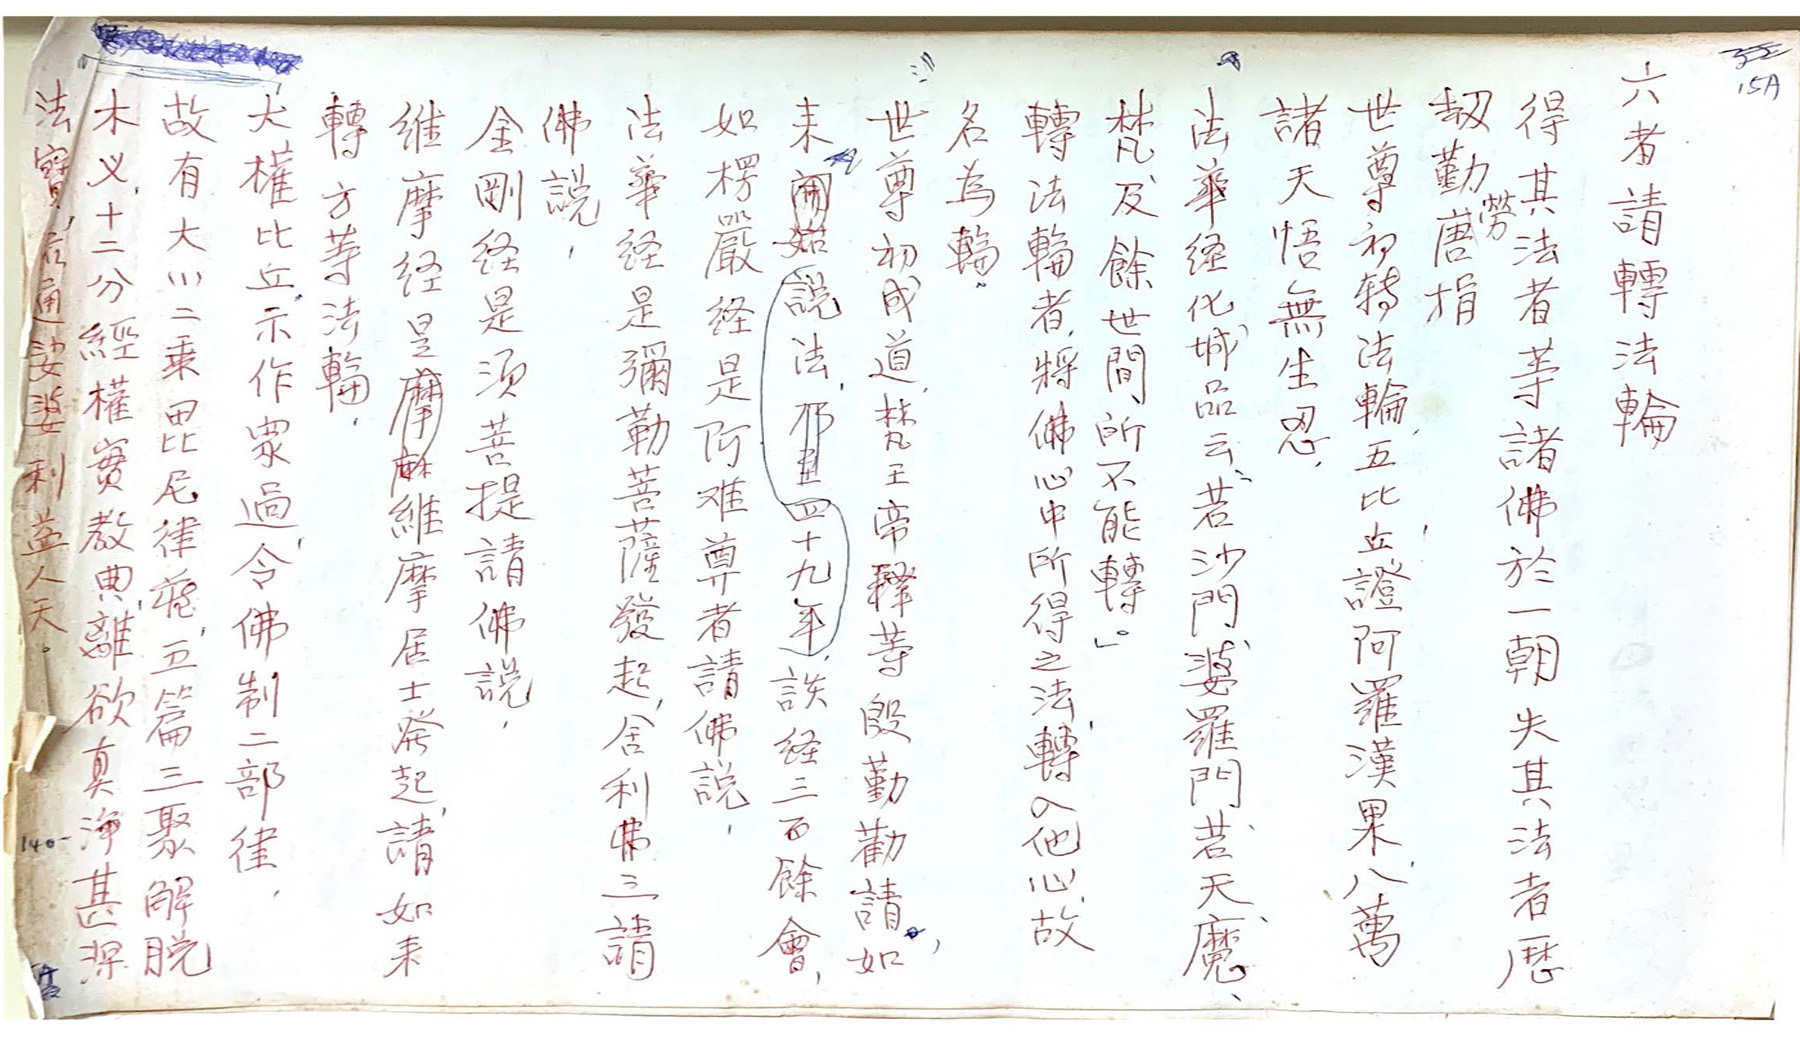 15A
六者請轉法輪
得其法者等諸佛於一朝失其法者歷
劫勤勞唐捐
世尊初轉法輪,五比丘證阿羅漢果,八萬
諸天悟無生忍,
法華経化城品云:若沙門、婆羅門、若天、魔、
梵、及餘世間所不能轉」。
轉法輪者,將佛心中所得之法,轉入他心,故
名為輪。
世尊初成道,梵王帝釋等殷勤勸請如
来說法,四十九年,談経三百餘會,
如楞嚴経是阿难尊者請佛說,
法華経是彌勒菩薩發起,舍利佛三請
佛說,
金剛経是須菩提請佛說,
維摩経是維摩居士発起,請如来
轉方等法輪,
大權比丘示作眾過,令佛制二部律,
故有大小二乘毘尼律藏,五篇三聚解脱
木义,十二分經權實教典,離欲真淨甚深
法寶,流通娑婆利益人天。
140-